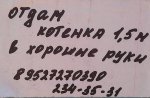 отдам
котенка 1,5 м
в хорошие руки
89527270390
234-35-31